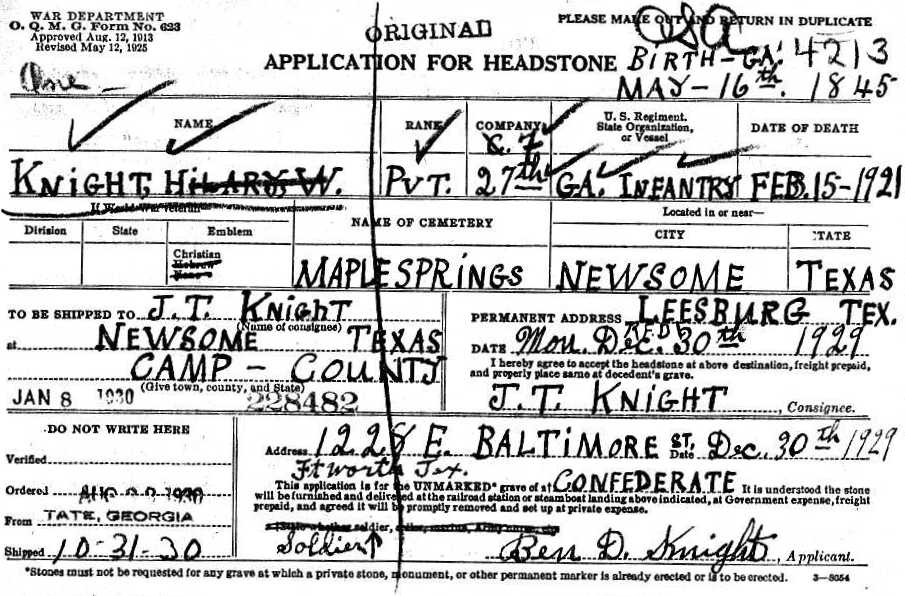 WAR DEPARTMENT
O. Q. M. G. Form No. 623
Approved Aug. 12, 1913
Revised May 12, 1925
ORIGINAL
PLEASE MAKE OUT AND RETURN IN DUPLICATE
APPLICATION FOR HEADSTONE
BIRTH-GA. 4213
MAY-16th. 1845
One
NAME
RANK
COMPANY
U. S. Regiment.
State Organization,
or Vessel
DATE OF DEATH
KNIGHT, HILARY W.
PVT.
27th
GA. INFANTRY
FEB. 15-1921
If World War veteran
Division
State
Emblem
Christian
Hebrew
None
NAME OF CEMETERY
Located in or near—
CITY
STATE
MAPLE SPRINGS
NEWSOME
TEXAS
TO BE SHIPPED TO J.T. KNIGHT
(Name of consignee)
at NEWSOME TEXAS
CAMP - COUNTY
(Give town, county, and State)
JAN 8 1930
228482
PERMANENT ADDRESS LEESBURG TEX.
DATE Mon. Dec. 30th 1929
I hereby agree to accept the headstone at above destination, freight prepaid,
and properly place same at decedent's grave.
J.T. KNIGHT, Consignee.
DO NOT WRITE HERE
Verified
Ordered
From TATE, GEORGIA
Shipped 10-31-30
Address 1228 E. BALTIMORE ST. Date Dec. 30th 1929
Ft worth Tex.
This application is for the UNMARKED* grave of a CONFEDERATE It is understood the stone
will be furnished and delivered at the railroad station or steamboat landing above indicated, at Government expense, freight
prepaid, and agreed it will be promptly removed and set up at private expense.
Soldier
Ben D. Knight, Applicant.
*Stones must not be requested for any grave at which a private stone, monument, or other permanent marker is already erected or is to be erected.
3—8054